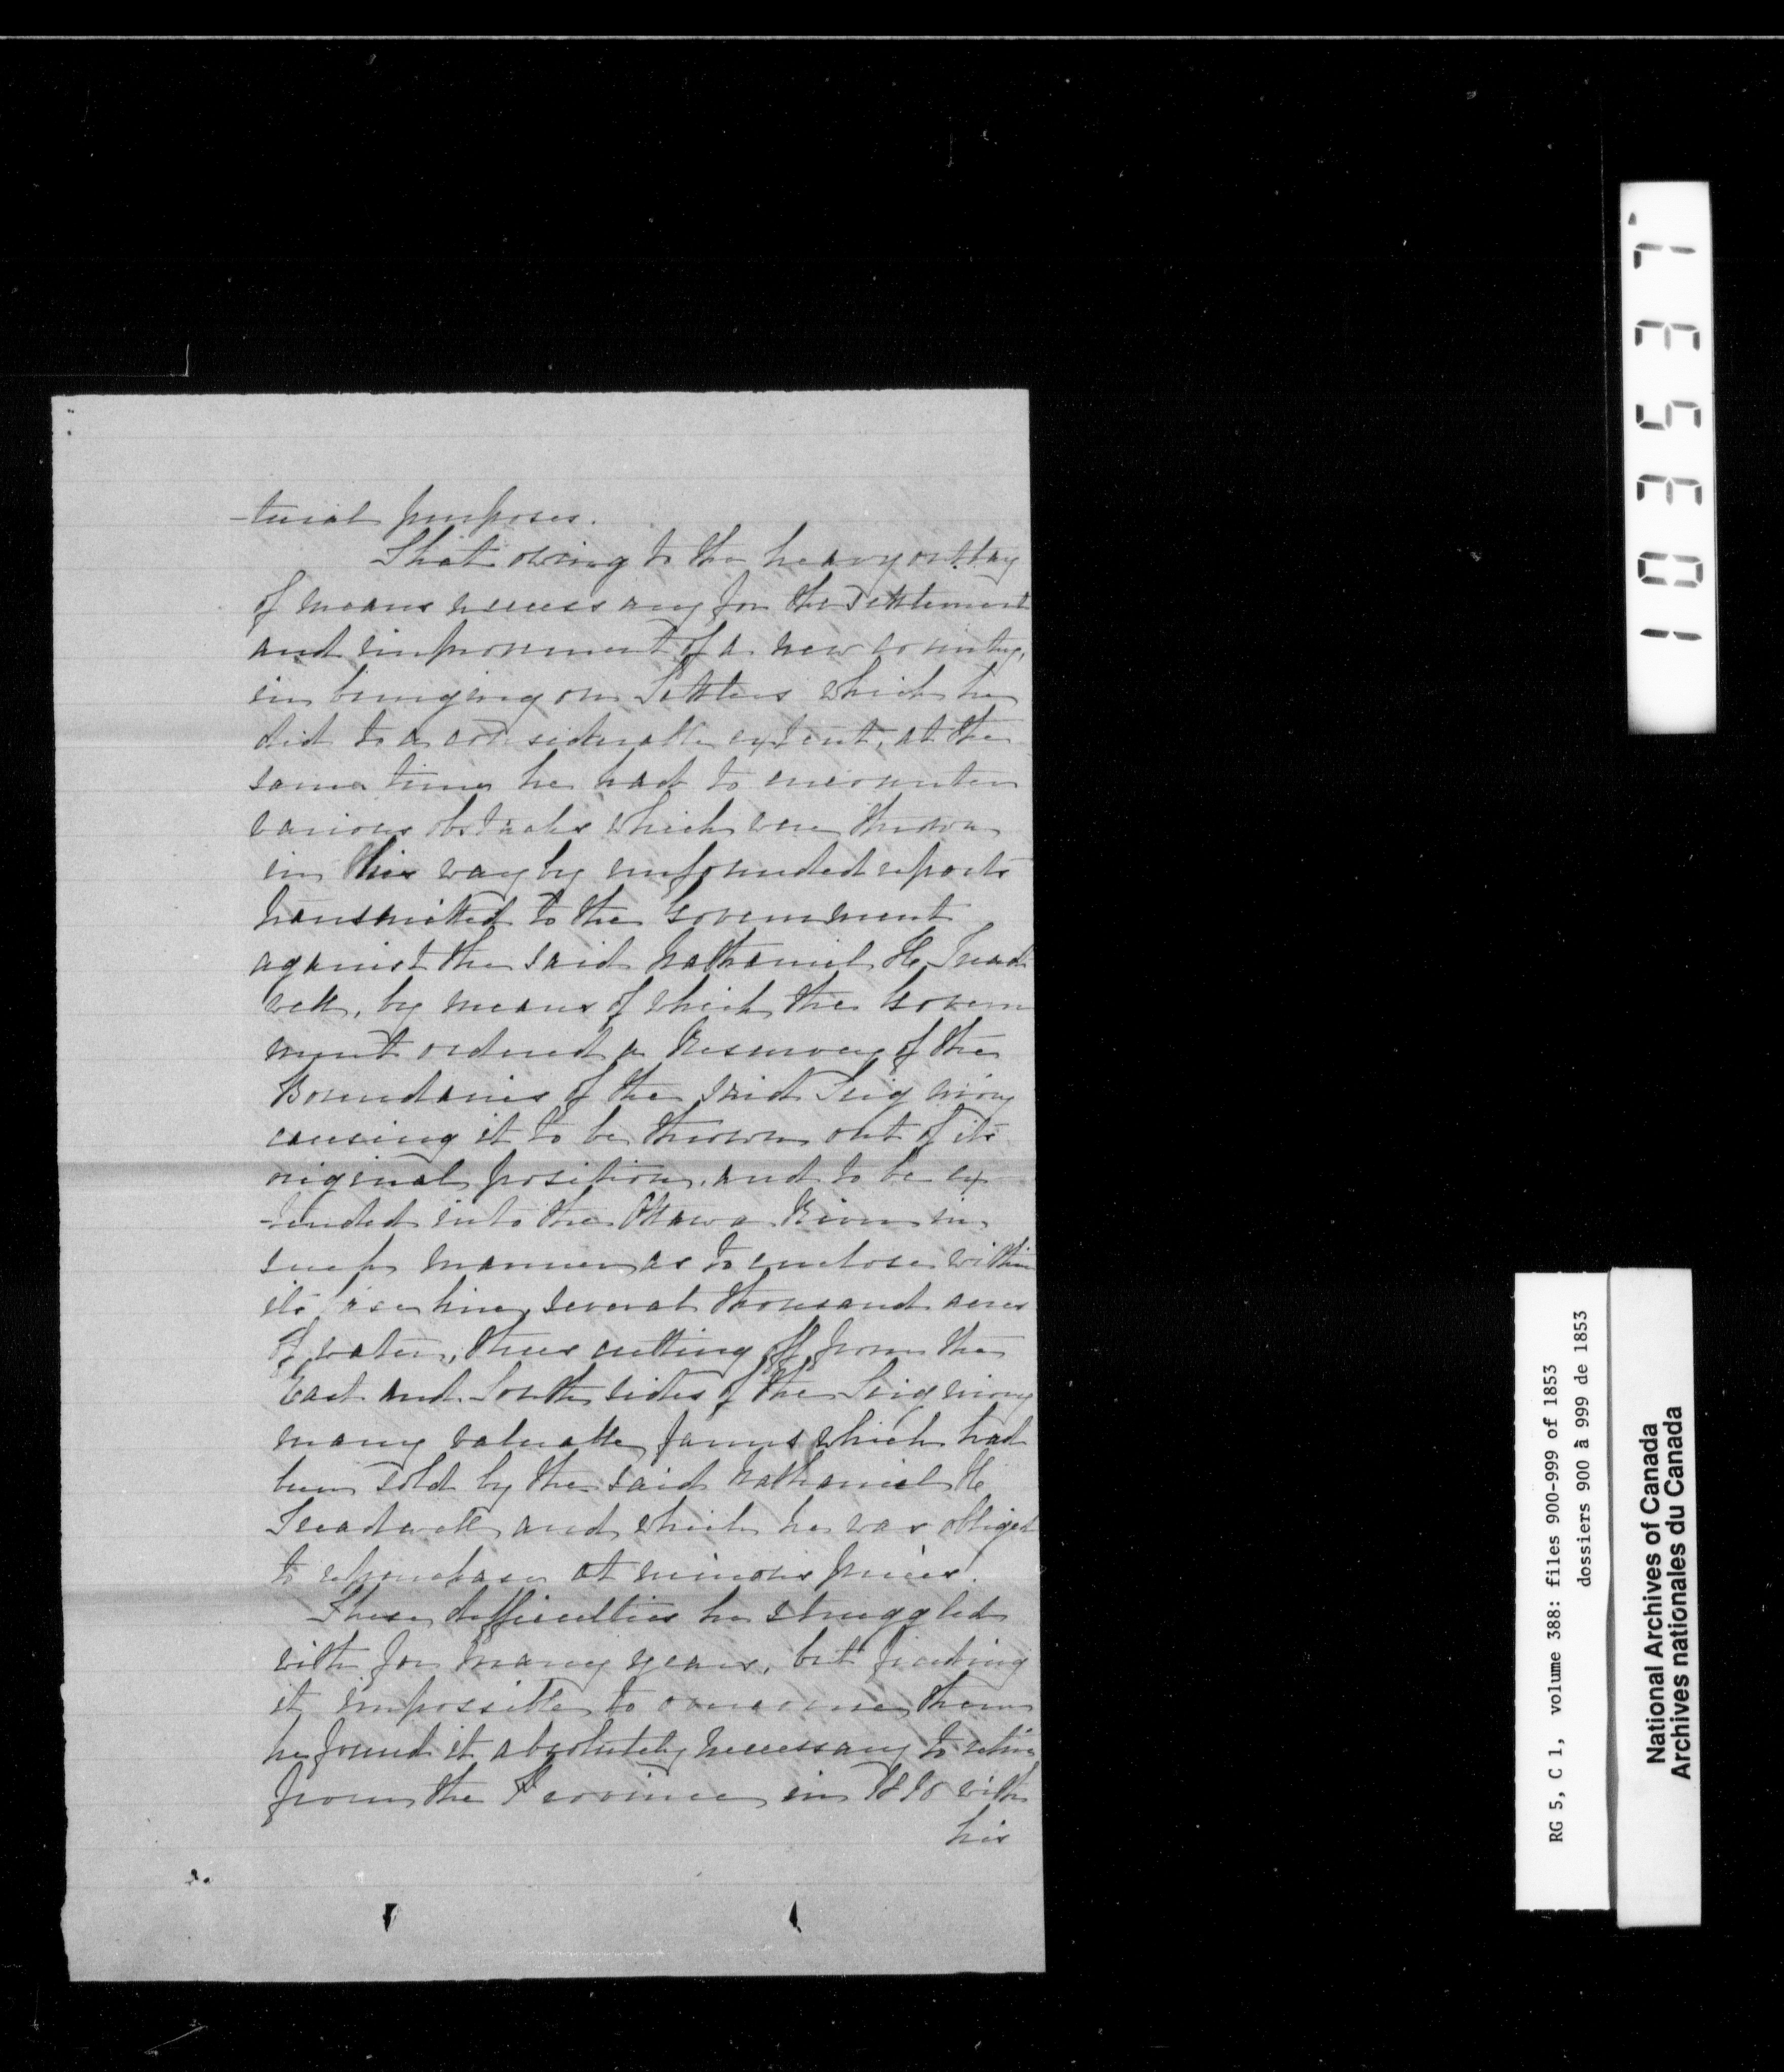 -tural purposes.
That owing to the heavy outlay
of means necessary for the Settlement
and improvement of a new country,
in bringing on Settlers which he
did to a considerable extent, at the
same time he had to encounter
various obstacles which were thrown
in his way by unfounded reports
transmitted to the Government
against the said Nathaniel H. Tread
well, by means of which the Govern
ment ordered a Resurvey of the
Boundaries of the said Seigniory
causing it to be thrown out of its
original position, and to be ex
-tended into the Ottawa River in
such manner as to enclose within
its base line, several thousand acres
of water, thus cutting off from the
East and South sides of the Seigniory
many valuable farms which had
been sold by the said Nathaniel H.
Treadwell and which he was obliged
to repurchase at ruinous prices.
These difficulties he struggled
with for many years, but finding
it impossible to overcome them
he found it absolutely necessary to retire
from the Province in with
his
103537
RG 5, C 1, volume 388: files 900-999 of 1853
dossiers 900 à 999 de 1853
National Archives of Canada
Archives nationales du Canada